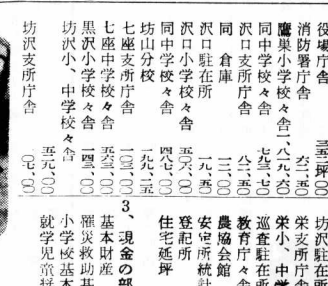 役場庁舎 三五三坪〇〇
消防署庁舎 六二、五〇
鷹巣小学校々舎一、八一九、六〇
同中学校々舎 七九三、七〇
沢口支所庁舎 六二、五〇
同 倉庫 一二、〇〇
沢口駐在所 一九、五〇
沢口小学校々舎 五〇六、〇〇
同中学校々舎 四八七、〇〇
坊山分校 一九九、二五
七座支所庁舎 一〇三、〇〇
七座中学校々舎 五六三、〇〇
黒沢小学校々舎 一四三、〇〇
坊沢小、中学校々舎 五二九、〇〇
坊沢支所庁舎 一〇七、〇〇
坊沢駐在所
栄支所庁舎
栄小、中学
巡査駐在所
教育庁々舎
農協会館
安定所統計
登記所
住宅延坪
3、現金の部
基本財産
罹災救助基
小学校基本
就学児童奨